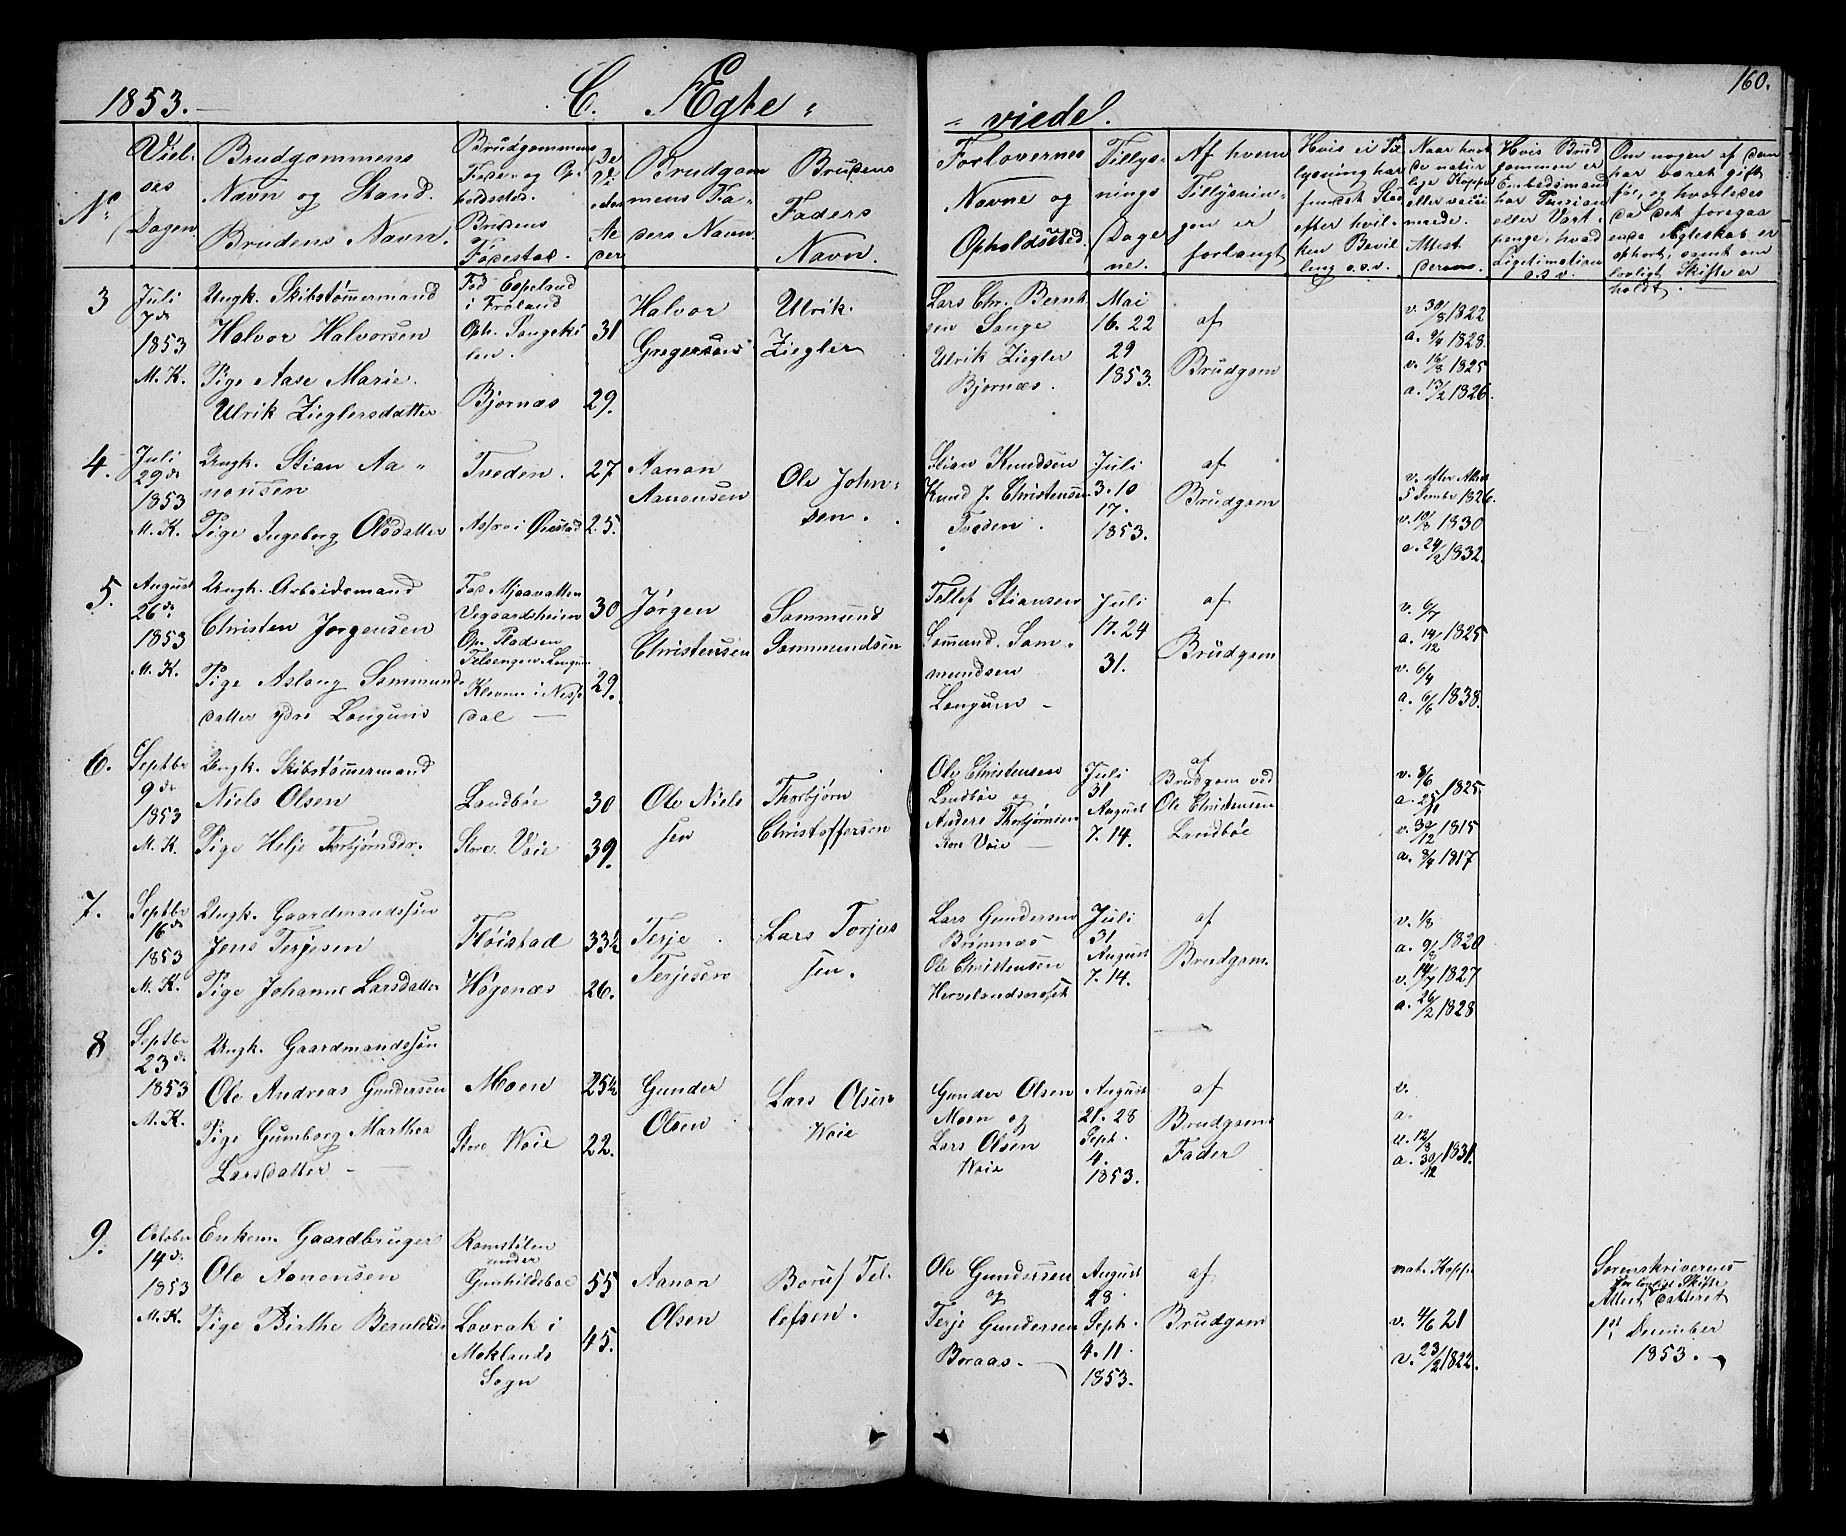 1853.
C. Ægte-
-viede.
160.
No
Viel-
ses
Dagen
Brudgommens
Navn og Stand.
Brudens Navn.
Brudgommens
Føde- og Op-
holdssted.
Brudens
Fødested.
De-
res
Al-
der
Brudgom
mens Fa-
ders Navn.
Brudens
Faders
Navn.
Forlovernes
Navne og
Opholdssted.
Tillys-
nings
Dage
ne.
Af hvem
Tillysnin-
gen er
forlangt
Hvis ei Til
lysning har
fundet Sted
efter hvil-
ken Bevil-
ling o.s.v.
Naar havt
de natur
lige Kopper
eller vacci
nerede.
Attest
derom.
Hvis Brud
gommen er
Embedsmand
har Pension
eller Vart-
penge, hvad
Legitimation
o.s.v.
Om nogen af dem
har været gift
før, og hvorledes
da det foregaa
ende Ægteskab er
ophørt, samt om
lovligt Skifte er
holdt.
3
Juli
7de
1853
M. K.
Ungk. Skibstømmermand
Halvor Halvorsen
Pige Aase Marie
Ulrik Zieglersdatter
Fød Espeland
i Froland
Oph. Songeki
len.
Bjornæs
31
29.
Halvor
Gregersens
Ulrik
Ziegler
Lars Chr. Bernt
sen Songe
Ulrik Ziegler
Bjornæs.
Mai
16. 22
29
1853.
af
Brudgom
v. 30/8 1822
a. 9/9 1828.
v. 16/8 1825
a. 13/2 1826.
4.
Juli
29de
1853
M. K.
Ungk. Stian Aa-
nonsen
Pige Ingeborg Olsdatter
Tveden.
Asferø i Øiestad
27
25.
Aanon
Aanonsen
Ole John-
sen.
Stian Knudsen
Knud J. Christensen
Tveden.
Juli
3. 10
17.
1853.
af
Brudgom
v. efter Attest
5 1826.
v. 10/8 1830
a. 24/2 1832.
5.
August
26de
1853
M. K.
Ungk. Arbeidsmand
Christen Jørgensen
Pige Aslaug Sommund
datter ydre Longum
Fød Mjaavatten
Vegaardsheien
Op. Pladsen
Longum
Klevene i Nisse
dal —
30
29.
Jørgen
Christensen
Sommund
Sommundsen
Tellef Stiansen
Sommund Som-
mundsen
Longum -
Juli
17. 24
31.
af
Brudgom
v. 6/7
a. 14/12 1825
v. 6/4
a. 6/6 1838.
6.
Septbr
9de
1853
M. K.
Ungk. Skibstømmermand
Niels Olsen
Pige Helje Torbjørnsdr.
Landbøe
Store Voie
30
39.
Ole Niels
sen
Thorbjørn
Christoffersen
Ole Christensen
Landbøe og
Anders Thorbjørnsen
Store Voie —
Juli
31
August
7. 14.
af
Brudgom ved
Ole Christensen
Landbøe
v. 8/6
a. 25/11 1825
v. 30/12 1815
a. 8/9 1817
7.
Septbr
16de
1853
M. K.
Ungk. Gaardmandssøn
Jens Terjesen
Pige Johanne Larsdatter
Fløistad
Høgenæs
33½
26.
Terje
Terjesen
Lars Torjus
sen.
Lars Gundersen
Brimnæs
Ole Christensen
Juli
31
August
7. 14.
af
Brudgom.
v. 1/8
a. 9/8 1820
v. 14/7 1827
a. 26/2 1828
8
Septbr
23de
1853
M. K.
Ungk. Gaardmandssøn
Ole Andreas Gundersen
Pige Gumborg Marthea
Larsdatter —
Moen
Store Woie
25½
22.
Gunder
Olsen
Lars Olsen
Woie
Gunder Olsen
Moen og
Lars Olsen
Woie
August
21. 28
Sept.
4.
1853.
af
Brudgoms
Fader
v.
a.
v. 12/8
a. 30/12 1831.
9.
October
14de
1853
M. K.
Enkem. Gaardbruger
Ole Aanonsen
Pige Birthe
Romstølen
under
Gunhildsboe
Lovrak i
Moklands
Sogn
55
45.
Aanon
Olsen
Tel-
lefsen.
Ole Gundersen
og
Terje Gundersen
Boraas.
August
28
Sept.
4. 11.
1853.
af
Brudgom
nat. Kopper
v. 4/6 21
v. 23/2 1822.
Sorenskriverens
for lovligt Skifte
Attest datteret
1st December
1853.